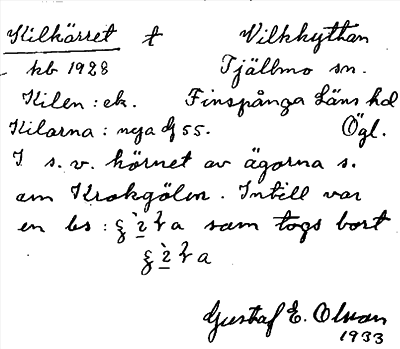 Kilkärret t Vilkhyttan
kb 1928 Tjällmo sn.
Kilen : ek. Finspånga Läns hd
Kilarna : nya dj 55. Ögl.
I s. v. hörnet av ägorna s.
om Krokgölen. Intill var
en ls : som togs bort
Gustaf E. Olson
1933